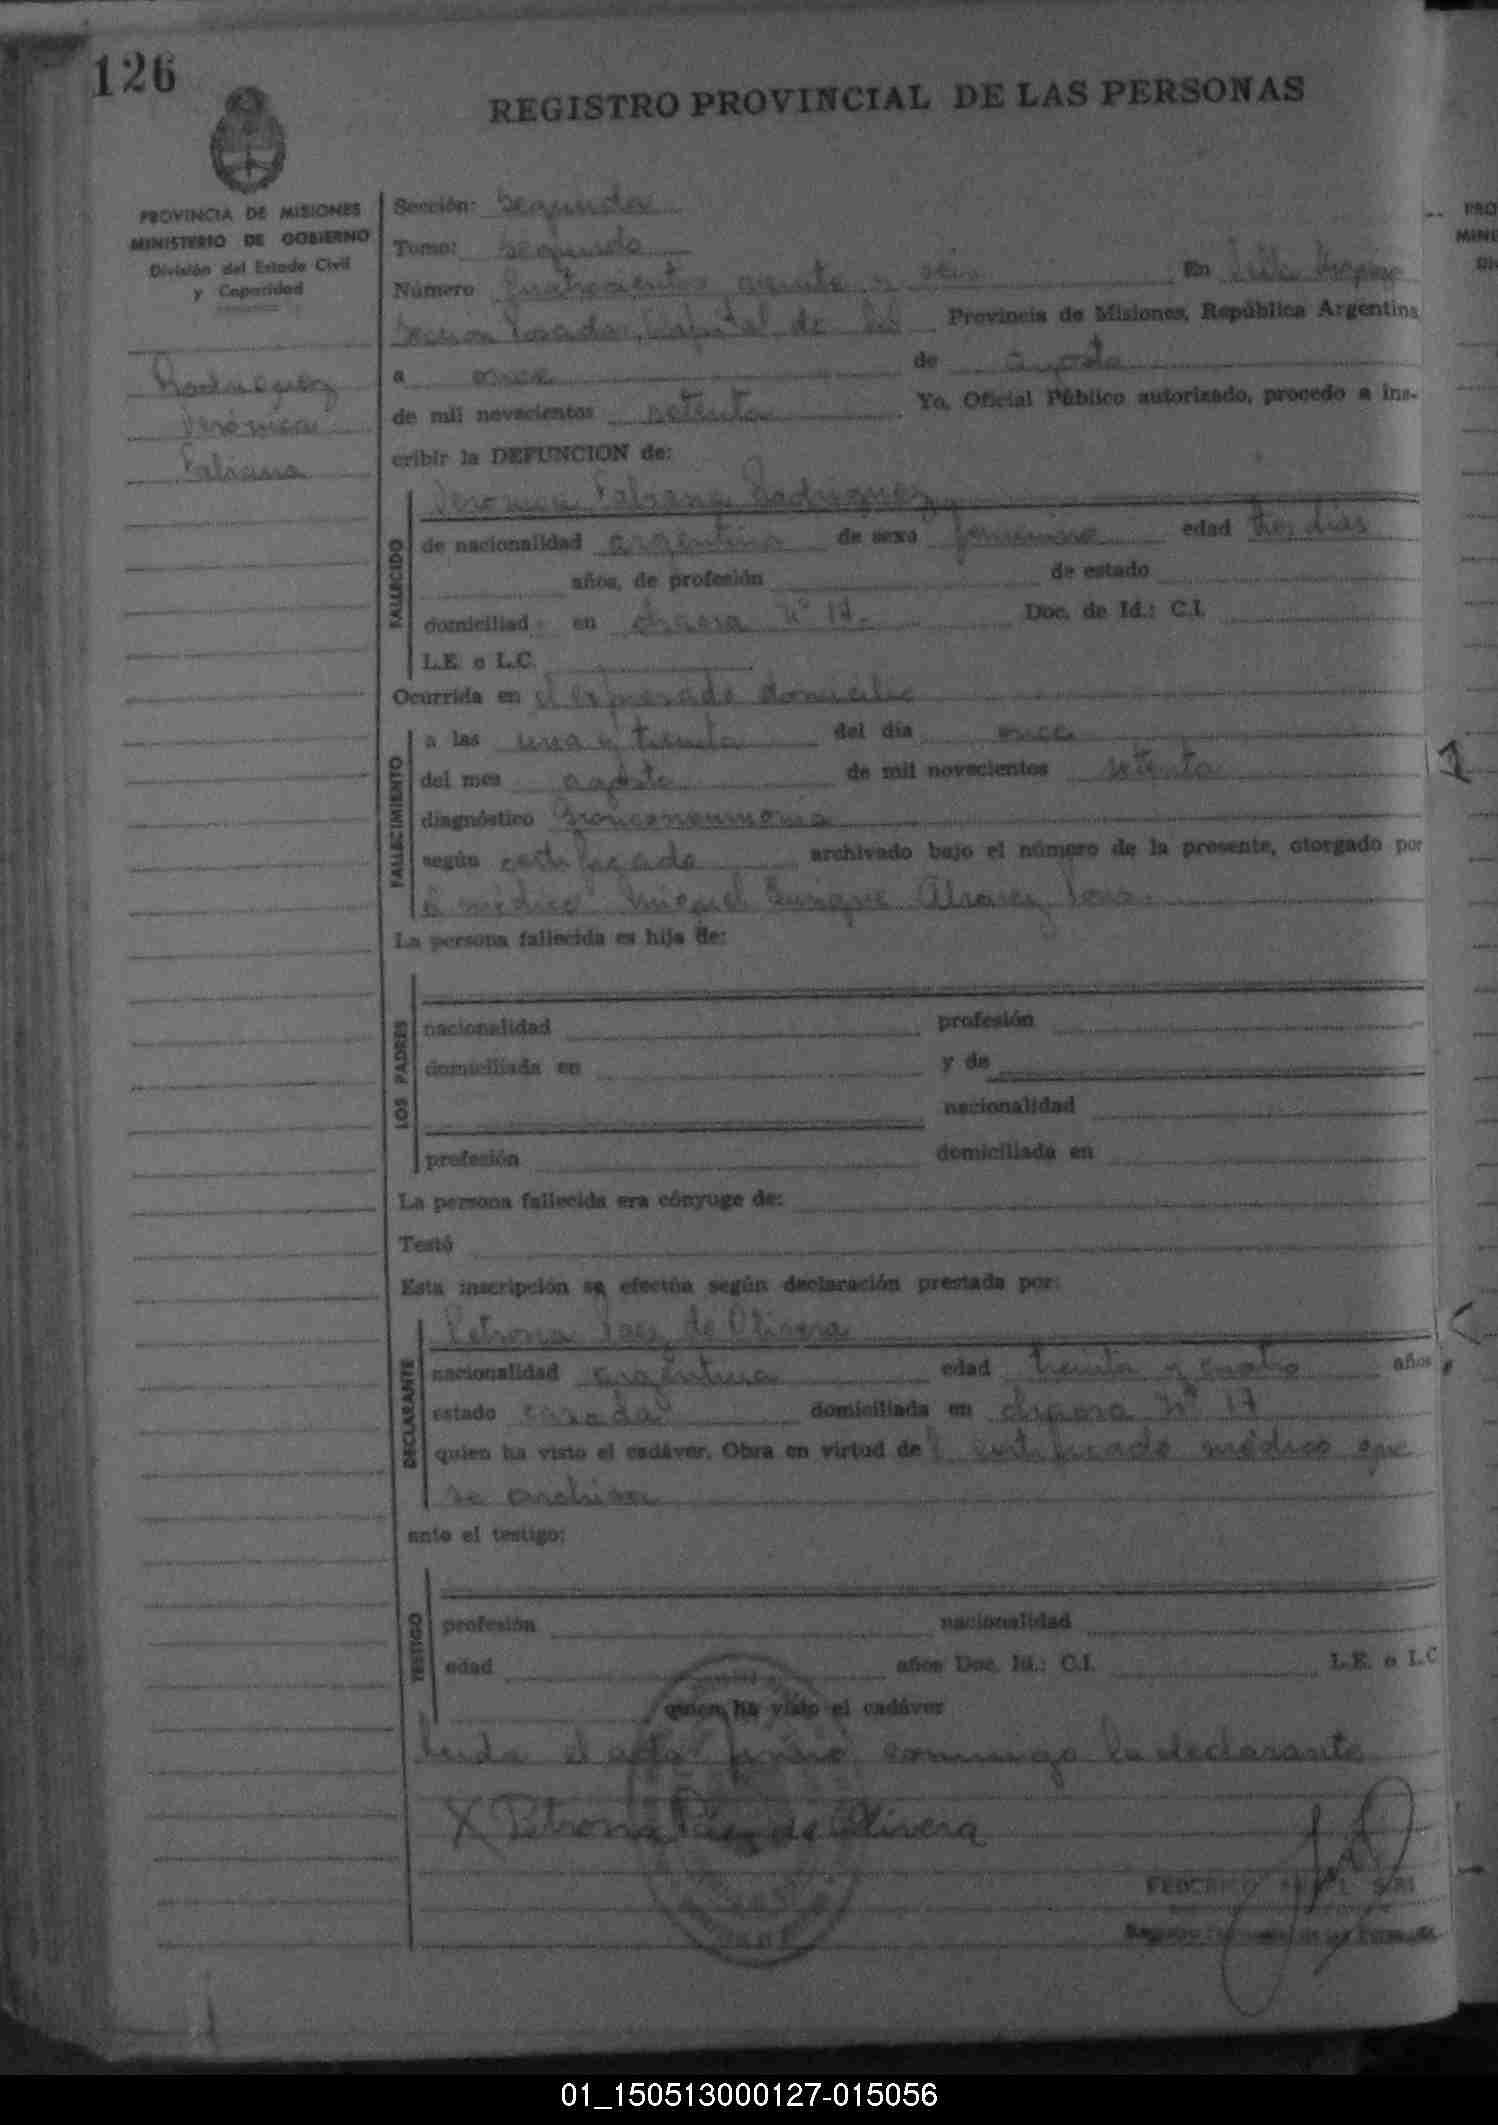 126
REGISTRO PROVINCIAL DE LAS PERSONAS
PROVINCIA DE MISIONES
MINISTERIO DE GOBIERNO
División del Estado Civil
y Capacidad
Rodriguez
Verónica
Fabiana
Sección: Segunda
Tomo: Segundo
Número Cuatrocientos y seis En
Sección Posadas, Capital de la Provincia de Misiones, República Argentina
a once de agosto
de mil novecientos setenta Yo, Oficial Público autorizado, procedo a ins-
cribir la DEFUNCION de:
Verónica Fabiana Rodriguez
FALLECIDO
de nacionalidad argentina de sexo femenino edad tres días
años, de profesión de estado
domiciliad en chacra Nº 17.- Doc. de Id.: C.I.
L.E. o L.C.
Ocurrida en el expresado domicilio
FALLECIMIENTO
a las una y treinta del día once
del mes agosto de mil novecientos setenta
diagnóstico Bronconeumonia
según certificado archivado bajo el número de la presente, otorgado por
el médico Miguel Enrique Alvarez
La persona fallecida es hija de:
LOS PADRES
nacionalidad profesión
domiciliada en y de
nacionalidad
profesión domiciliada en
La persona fallecida era cónyuge de:
Testó
Esta inscripción se efectúa según declaración prestada por:
DECLARANTE
Petrona Paez de Olivera
nacionalidad argentina edad treinta y cuatro años,
estado casada domiciliada en chacra Nº 17
quien ha visto el cadáver. Obra en virtud del certificado médico que
se archiva
ante el testigo:
TESTIGO
profesión nacionalidad
edad años Doc. Id.: C.I. L.E. o L.C
quien ha visto el cadáver
Leida el acta firmó conmigo la declarante
X Petrona Páez de Olivera
FEDERICO
01_150513000127-015056